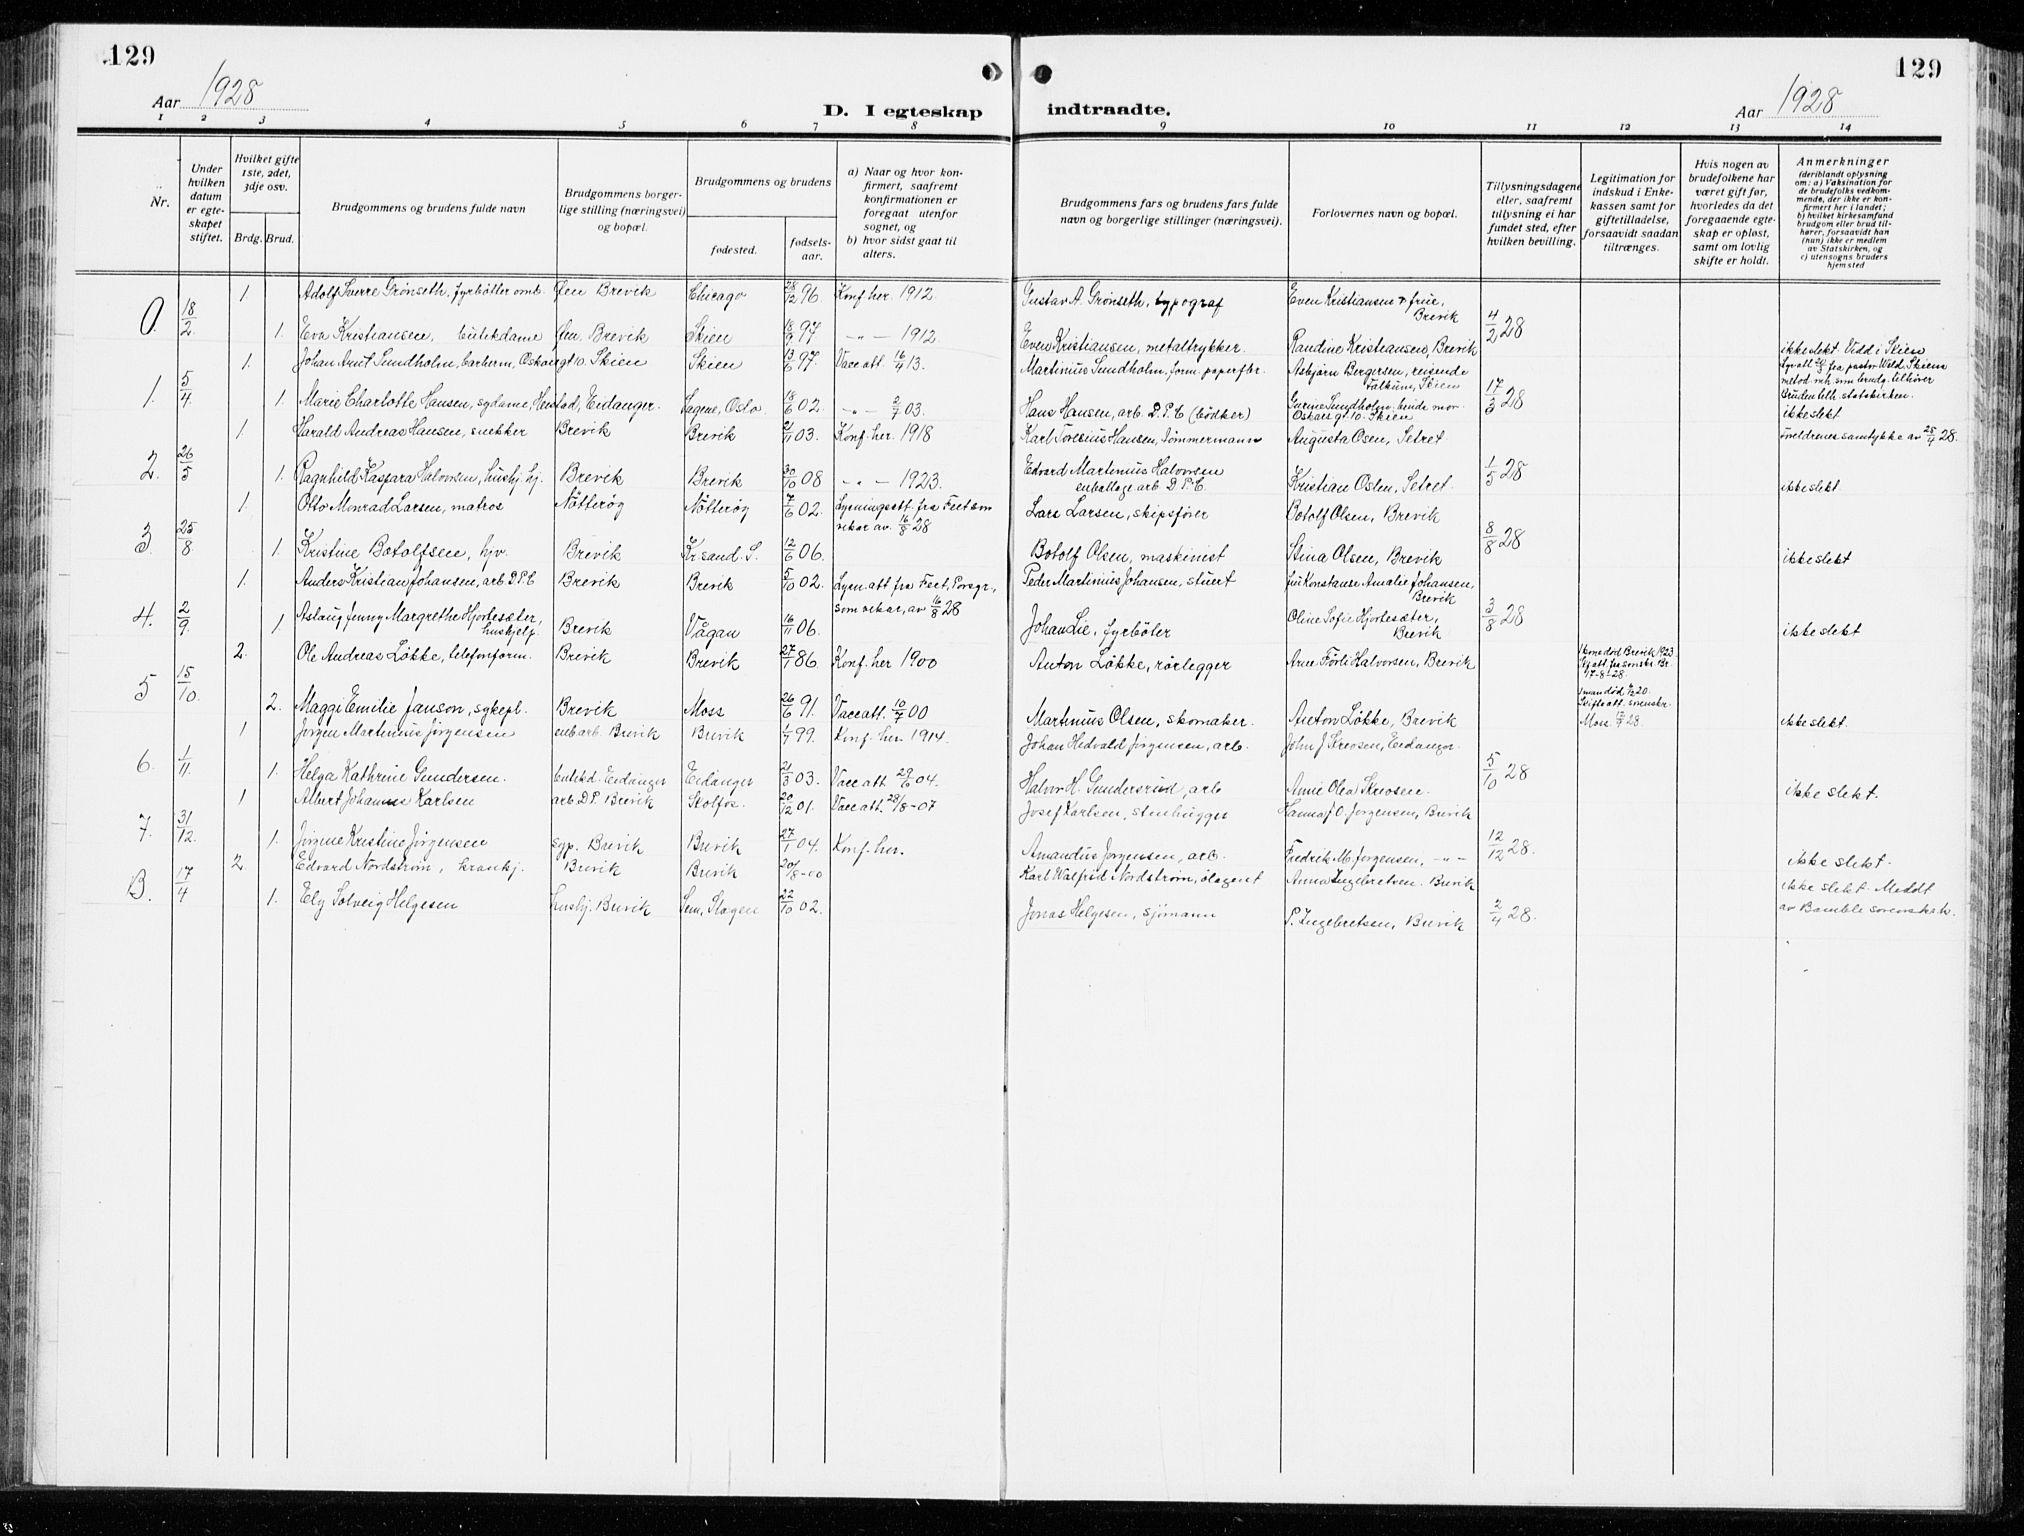 129
129
Aar 1928
D. I egteskap indtraadte.
Aar 1928
1 2 3 4 5 6 7 8 9 10 11 12 13 14
Nr.
Under hvilken datum er egteskapet stiftet.
Hvilket gifte 1ste, 2det, 3dje osv.
Brdg. Brud.
Brudgommens og brudens fulde navn
Brudgommens borgerlige stilling (næringsvei) og bopæl.
Brudgommens og brudens
fødested.
fødselsaar.
a) Naar og hvor konfirmert, saafremt konfirmationen er foregaat utenfor sognet, og
b) hvor sidst gaat til alters.
Brudgommens fars og brudens fars fulde navn og borgerlige stillinger (næringsvei).
Forlovernes navn og bopæl.
Tillysningsdagene eller, saafremt tillysning ei har fundet sted, efter hvilken bevilling.
Legitimation for indskud i Enkekassen samt for giftetilladelse, forsaavidt saadan tiltrænges.
Hvis nogen av brudefolkene har været gift før, hvorledes da det foregaaende egteskap er opløst, samt om lovlig skifte er holdt.
Anmerkninger (deriblandt oplysning om: a) Vaksination for de brudefolks vedkommende, der ikke er konfirmert her i landet; b) hvilket kirkesamfund brudgom eller brud tilhører, forsaavidt han (hun) ikke er medlem av Statskirken, og c) utensogns bruders hjemsted
1. Adolf Sverre Grønseth, fyrbøter omb. Øen Brevik Chicago 28/12 96 Konf. her. 1912. Gustav A. Grønseth, typograf Even Kristiansen & frue, Brevik
0. 18/2. 1. Eva Kristiansen, butikdame Øen, Brevik Skien 18/9 97 -"- 1912. Even Kristiansen, metaltrykker. Randine Kristiansen, Brevik 4/2 28
1. Johan Arnt Sundholm, barberm, Oskarsgt 10. Skien Skien 13/6 97. Vacc att. 16/4 13. Martinius Sundholm, form. paperfbr. Asbjørn Bergersen, reisende Falkum, Skien ikke slekt Vidd i Skien
1. 5/4. 1. Marie Charlotte Hansen, sydame, Heistad, Eidanger. Sagene, Oslo 18/6 02. -"- 2/7 03. Hans Hansen, arb. D.P.C (bødker) Gurine Sundholm, Oskarsgt 10. Skien 17/3 28 ikke slekt
1. Harald Andreas Hansen, snekker Brevik Brevik 21/11 03. Konf. her. 1918 Karl Toresius Hansen, tømmermann Augusta Osen, Setret. foreldrenes samtykke av 25/4 28.
2. 26/5 1. Ragnhild Kaspara Halvorsen, hushj. hj. Brevik Brevik 30/10 08 -"- 1923. Edvard Martinius Halvorsen emballage arb D.P.C. Kristian Osen, Setret. 1/5 28 ikke slekt.
1. Otto Monrad Larsen, matros Nøtterøy Nøtterøy 7/6 02. Lysningsatt. fra Feet som vikar av. 16/8 28 Lars Larsen, skipsfører Botolf Olsen, Brevik
3. 25/8. 1. Kristine Botolfsen, hjv. Brevik Kr.sand S. 12/6 06. Botolf Olsen, maskinist Stina Olsen, Brevik 8/8 28 ikke slekt
1. Anders Kristian Johansen, arb D.P.C Brevik Brevik 5/10 02. Lysn. att fra Feet, Porsgr., som vikar, av 16/8 28 Peder Martinius Johansen, stuert fru Konstanse Amalie Johansen, Brevik
4. 2/9. 1 Aslaug Jenny Margrethe Hjortesæter, hushjelp. Brevik Vågan 16/11 06. Johan Lie, fyrbøter Oline Sofie Hjortesæter, Brevik 3/8 28 ikke slekt
2. Ole Andreas Løkke, telefonform. Brevik Brevik 27/1 86 Konf. her 1900 Anton Løkke, rørlegger Arne Førli Halvorsen, Brevik 1 kone død Brevik 1923.
17-8-28.
5 15/10. 2. Maggi Emilie Janson, sykepl. Brevik Moss 26/6 91. Vacc att. 10/7 00 Martinius Olsen, skomaker. Anton Løkke, Brevik 1 man død 20. Skifteatt. sorenskr. Moss 28. ikke slekt.
1 Jørgen Martinius Jørgensen emb arb. Brevik Brevik 1/7 99. Konf. her 1914. Johan Hedvald Jørgensen, arb. John J. Skeosen, Eidanger.
6. 1/11. 1. Helga Kathrine Gundersen. butikd. Eidanger Eidanger 21/3 03. Vacc att 29/6 04. Halvor H. Gundersrud, arb Anne Olea Skeosen. 5/10 28 ikke slekt.
1 Albert Johannes Karlsen arb. D.P. Brevik Skotfos. 20/12 01. Vacc att. 28/8-07 Josef Karlsen, stenhugger Hanna J. O. Jørgensen, Brevik
7. 31/12. 1. Jørgine Kristine Jørgensen syp. Brevik Brevik 27/1 04. Konf. her. Amandus Jørgensen, arb. Fredrik M. Jørgensen, -"- 12/12 28. ikke slekt.
2. Edvard Nordstrøm, krankj. Brevik Brevik 20/8-00 Karl Walfrid Nordstrøm, ølagent Anna Ingebretsen. Brevik ikke slekt. Meddt
B. 17/4 1. Ely Solveig Helgesen hushj. Brevik Sem, Slagen 22/10 02. Jonas Helgesen, sjømann P. Ingebretsen, Brevik 2/4 28. av Bamble sorenskriv.